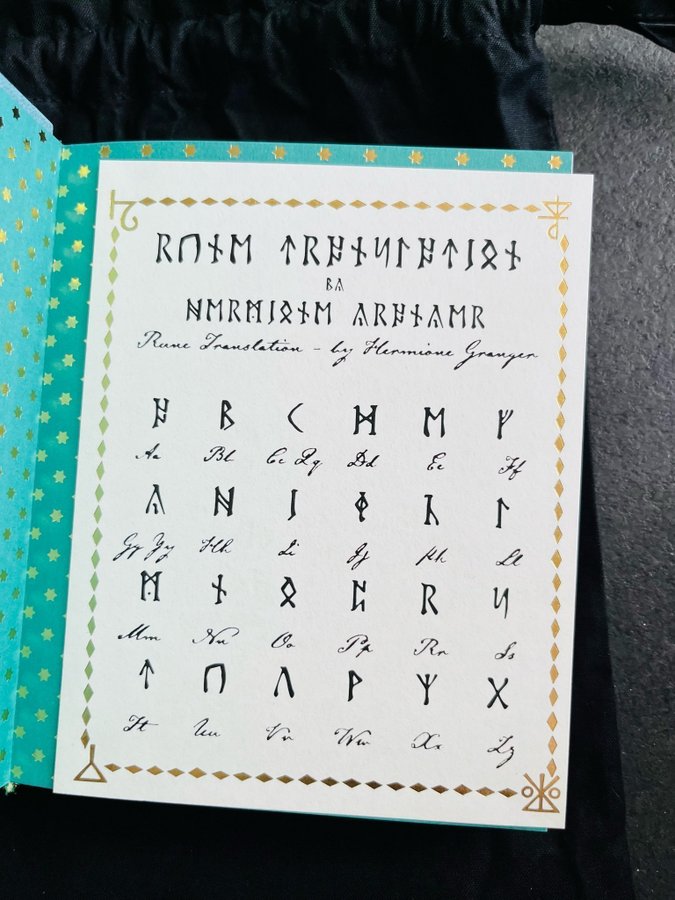 ᚱᚢᚾᛖ ᛏᚱᚨᚾᛋᛚᚨᛏᛁᛟᚾ
ᛒᚤ
ᚺᛖᚱᛗᛁᛟᚾᛖ ᚤᚱᚨᚾᚤᛖᚱ
Rune Translation - by Hermione Granger
ᚨ ᛒ ᚲ ᛞ ᛖ ᚠ
Aa Bb Cc Qq Dd Ee Ff
ᚤ ᚺ ᛁ ᛄ ᚳ ᛚ
Gg Yy Hh Ii Jj Kk Ll
ᛗ ᚾ ᛟ ᛈ ᚱ ᛋ
Mm Nn Oo Pp Rr Ss
ᛏ ᚢ ᚣ ᚹ ᛉ ᚷ
Tt Uu Vv Ww Xx Zz